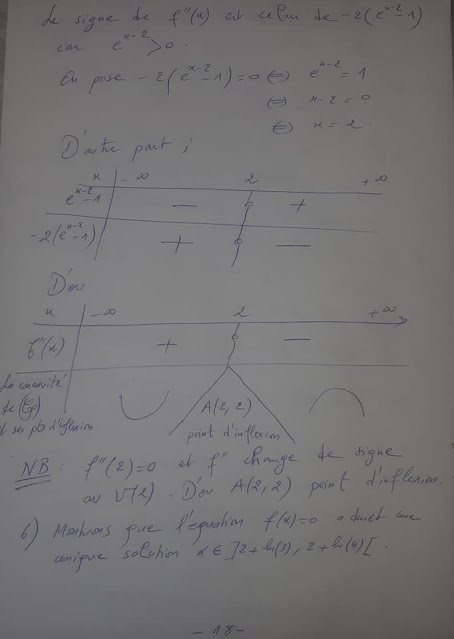 Le signe de f''(x) est celui de -2(e^{x-2}-1)
car e^{x-2}>0.
On pose -2(e^{x-2}-1)=0 ⇔ e^{x-2}=1
⇔ x-2=0
⇔ x=2.
D'autre part ;
x -∞ 2 +∞
e^{x-2}-1 - 0 +
-2(e^{x-2}-1) + 0 -
D'où
x -∞ 2 +∞
f''(x) + 0 -
La concavité
de (Cf)
et ses pts d'inflexion
A(2,2)
point d'inflexion
NB : f''(2)=0 et f'' change de signe
au V(2). D'où A(2,2) point d'inflexion.
6) Montrons que l'équation f(x)=0 admet une
unique solution α ∈ ]2+ln(3), 2+ln(4)[.
- 18 -